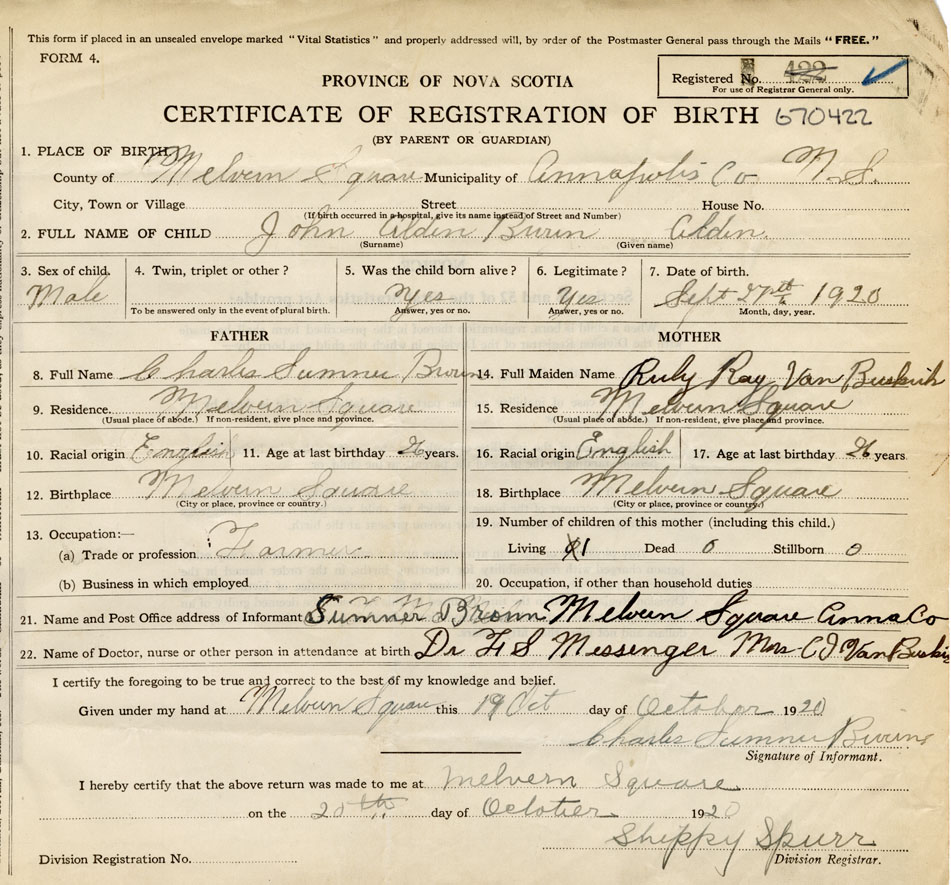 This form if placed in an unsealed envelope marked "Vital Statistics" and properly addressed will, by order of the Postmaster General pass through the Mails "FREE."
FORM 4.
Registered No. 422
For use of Registrar General only.
PROVINCE OF NOVA SCOTIA
CERTIFICATE OF REGISTRATION OF BIRTH 670422
(BY PARENT OR GUARDIAN)
1. PLACE OF BIRTH
County of Melvern Square Municipality of Annapolis Co N.S.
City, Town or Village Street House No.
(If birth occurred in a hospital, give its name instead of Street and Number)
2. FULL NAME OF CHILD John Alden Alden
(Surname) (Given name)
3. Sex of child. 4. Twin, triplet or other? 5. Was the child born alive? 6. Legitimate? 7. Date of birth.
Male Yes Yes Sept 27th 1920
To be answered only in the event of plural birth. Answer, yes or no. Answer, yes or no. Month, day, year.
FATHER MOTHER
8. Full Name Charles Sumner 14. Full Maiden Name Ruby Ray Van Buskirk
9. Residence. Melvern Square 15. Residence Melvern Square
(Usual place of abode.) If non-resident, give place and province. (Usual place of abode.) If non-resident, give place and province.
10. Racial origin English 11. Age at last birthday 26 years. 16. Racial origin English 17. Age at last birthday 26 years
12. Birthplace Melvern Square 18. Birthplace Melvern Square
(City or place, province or country.) (City or place, province or country.)
13. Occupation:— 19. Number of children of this mother (including this child.)
(a) Trade or profession Farmer Living 1 Dead 0 Stillborn 0
(b) Business in which employed 20. Occupation, if other than household duties
21. Name and Post Office address of Informant Sumner Melvern Square Anna Co
22. Name of Doctor, nurse or other person in attendance at birth Dr F S Messenger Mrs C J Van Buskirk
I certify the foregoing to be true and correct to the best of my knowledge and belief.
Given under my hand at Melvern Square this 19 Oct day of October 1920
Charles Sumner
Signature of Informant.
I hereby certify that the above return was made to me at Melvern Square
on the 20th day of October 1920
Shippy Spurr
Division Registration No. Division Registrar.